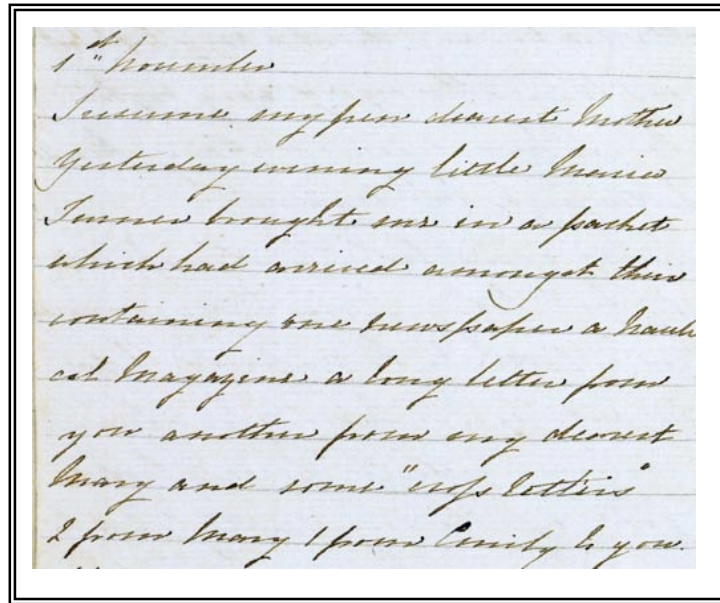 1st November
I resume my pen dearest Mother
Yesterday evening little Marie
Turner brought me in a packet
which had arrived amongst their
containing one newspaper a Nauti
cal Magazine a long letter from
you another from my dearest
Mary and some "crofs letters"
2 from Mary 1 from Emily to you.